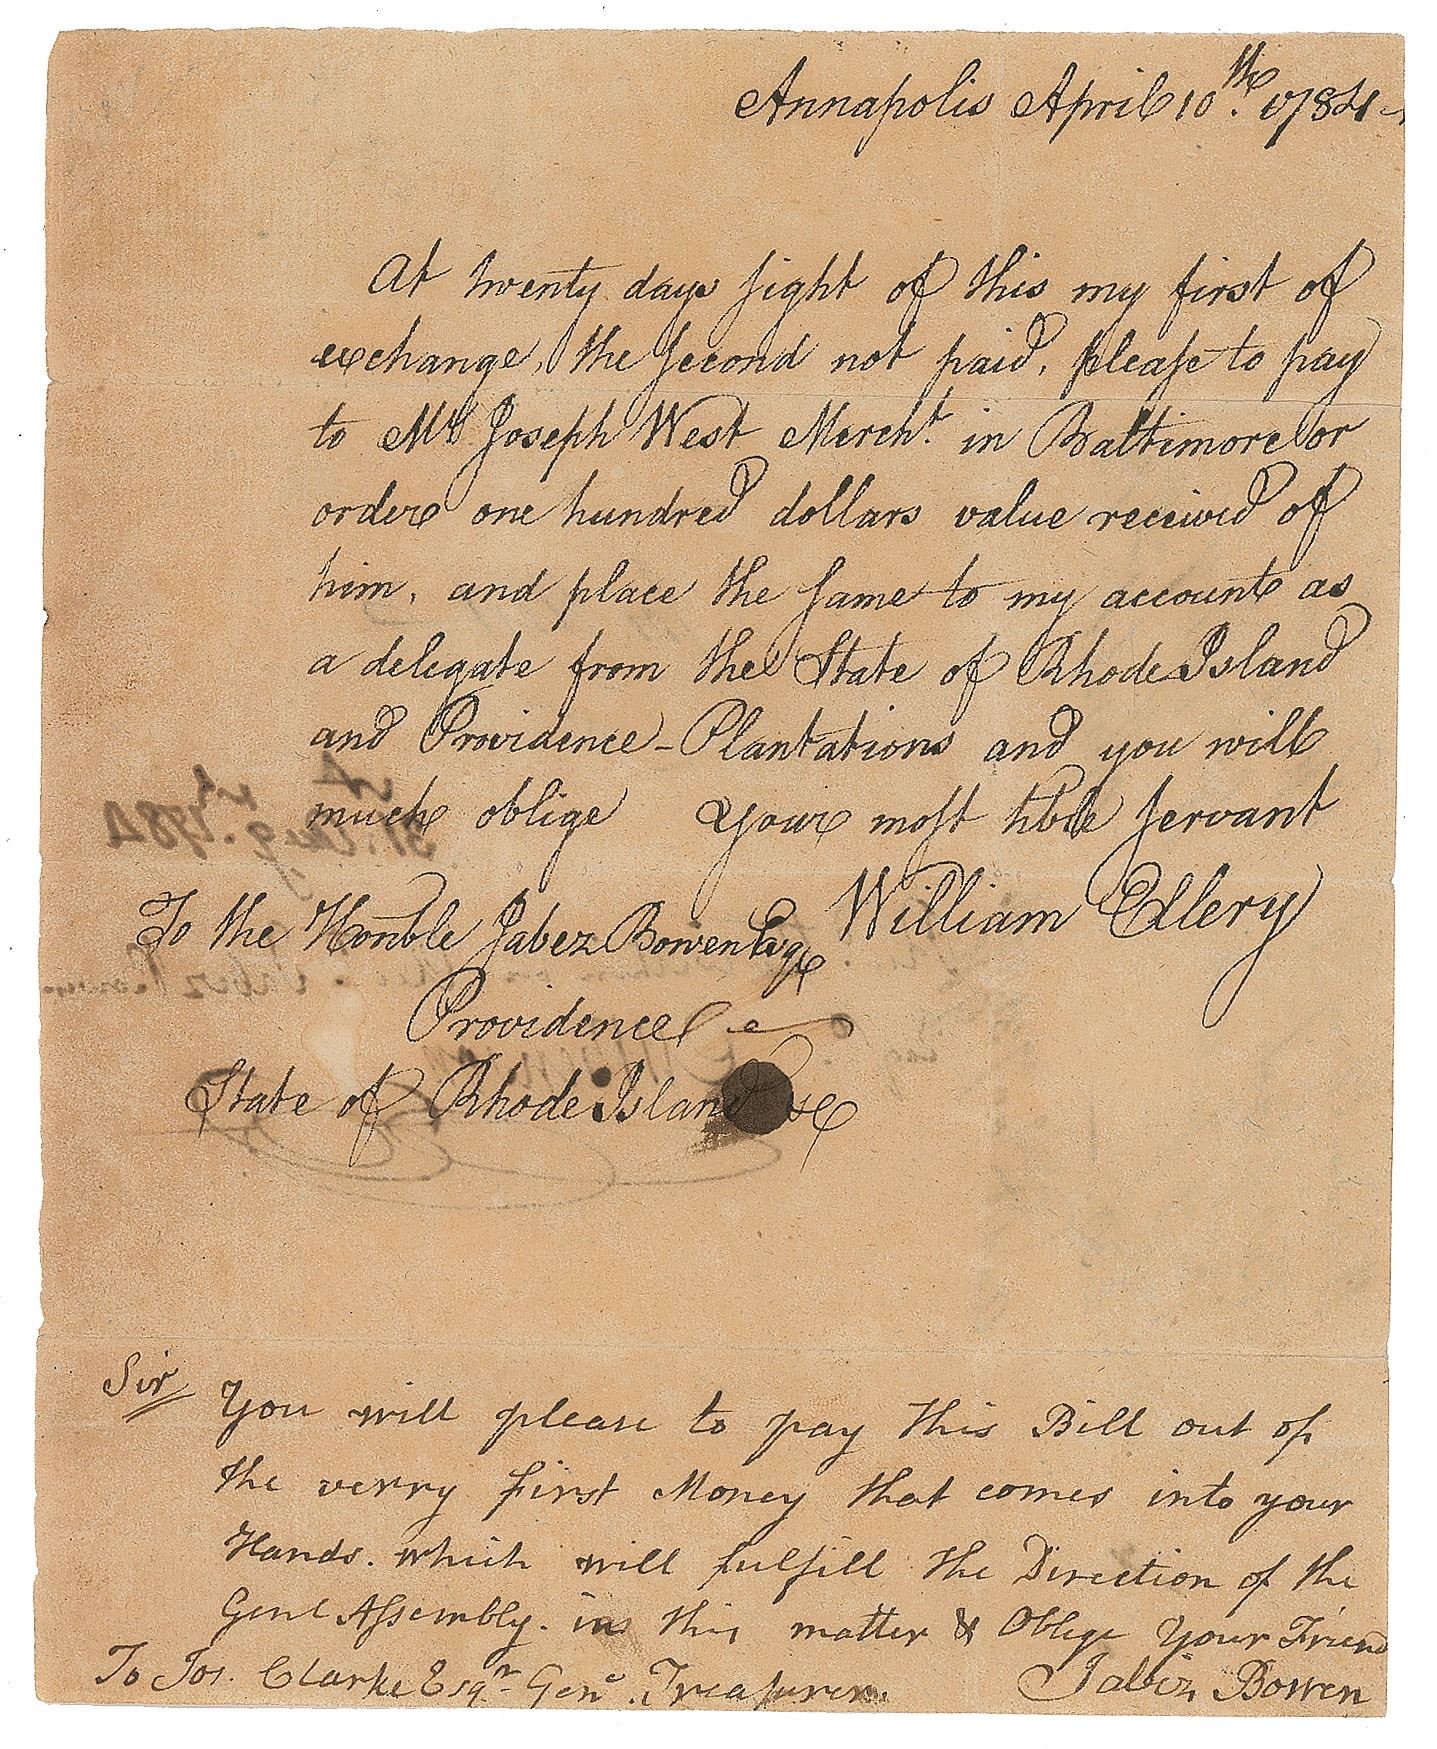 Annapolis April 10th. 1784
At twenty days sight of this my first of
exchange, the second not paid, please to pay
to Mr. Joseph West Mercht. in Baltimore or
order one hundred dollars value received of
him, and place the same to my account as
a delegate from the State of Rhode Island
and Providence-Plantations and you will
much oblige your most hble servant
William Ellery
To the Honble Jabez Bowen Esqr
Providence
State of Rhode Island &c
Sir You will please to pay this Bill out of
the verry first Money that comes into your
Hands. which will fulfill the Direction of the
Genl Assembly. in this matter & Oblige your Friend
Jabez Bowen
To Jos. Clarke Esqr. Genl. Treasurer
31st. Aug. 1784